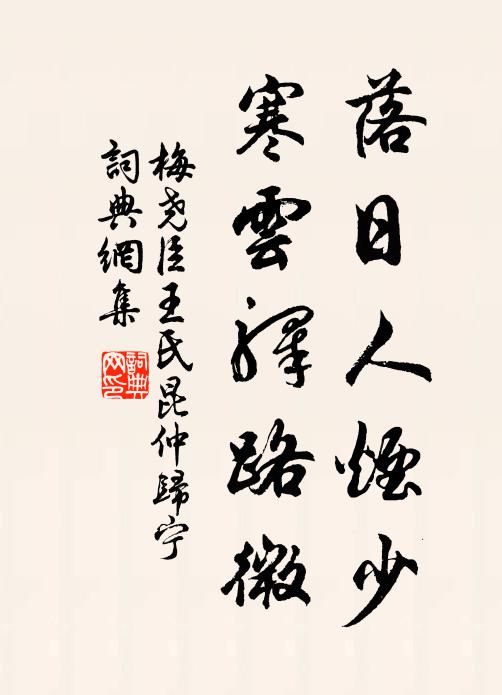 落日人煙少
寒雲驛路微
梅尧臣王氏昆仲歸宁
詞典網集
詞典
网印